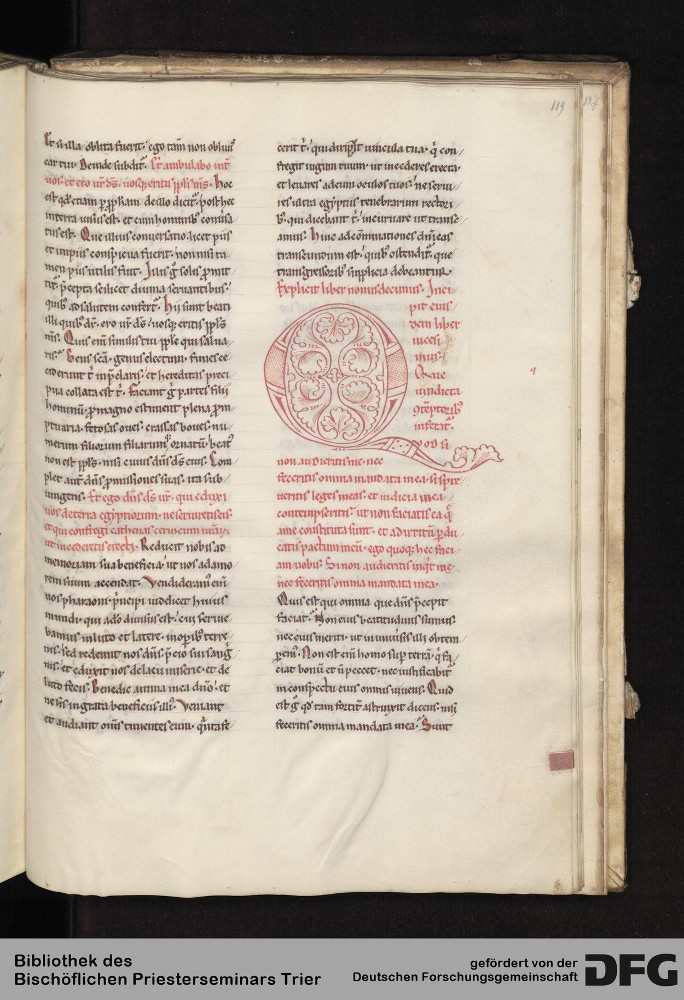 Et si illa oblita fuerit, ego tam̄ non obliuis
car tui. Deinde subdit. Et ambulabo int̄
uos. et ero ur̄ ds̄. uosq; eritis ppl̄s ms̄. Hoc
interra uisus est. et cum hominib; conuersa
tus est. Que illius conuersatio licet piis
et impiis conspicua fuerit. non nisi ta
men piis utilis fuit. Illis g̊ solis promit
tit. p̄cepta scilicet diuina seruantibus.
quib; ad salutem confert. Hi sunt beati
illi quib; dr̄. ero ur̄ ds̄. uosq; eritis ppl̄s
ms̄. Quis eni similis tui pple qui salua
ris. Gens sc̄a. genus electum. funes ce
ciderunt t̄ in p̄claris. et hereditas preci
pua collata est t̄. Faciant g̊ partes filii
hominū. p̄ magno estiment plena p̄m
ptuaria. fetosas oues. crassas boues. nu
merum filiorum filiarumq; ornatū. beat⁹
non est ppl̄s. nisi cuius dn̄s ds̄ eius. Com
plet aut̄ dn̄s p̄missiones suas. ita sub
iungens. Et ego dn̄s ds̄ ur̄. qui eduxi
uos de terra egyptiorum. ne seruiretis eis.
et qui confregi cathenas ceruicum ur̄arū.
ut incederetis erecti. Reducit nobis ad
memoriam sua beneficia. ut nos ad amo
rem suum accendat. Vendideram⁹ eni
nos pharaoni. p̄ncipi uidelicet huius
mundi. qui adeo diuisus est. ei serue
bamus in luto et latere. in operib; terre
nis. sed redemit nos dn̄s p̄cio sui sang̅
nis. et eduxit nos de lacu miserie. et de
luto fecis. Benedic anima mea dn̄o. et
ne sis ingrata beneficiis illi⁹. Veniant
et audiant om̄s timentes eum. quanta fe
cerit t̄. qui dirupit uincula tua. q̄ con
fregit iugum tuum. ut incederes erecta.
et leuares ad eum oculos tuos. ne serui
res ultra egyptiis tenebrarum rectori
b;. qui dicebant t̄. incuruare ut transe
amus. Hinc ad cōminationes dn̄icas
transeundum est. quib; ostendit. que
transgressorib; supplicia debeantur.
Explicit liber nonusdecimus. Inci
pit eius
dem liber
uicesi
mus.
Que
uindicta
9tēptorib;
inferat̄.
Quod si
non audieritis me. nec
feceritis omnia mandata mea. si spre
ueritis leges meas. et iudicia mea
contempseritis. ut non faciatis ea q̄
a me constituta sunt. et ad irritū perdu
catis pactum meū. ego quoq; hec faci
am uobis. Si non audieritis inquit me.
nec feceritis omnia mandata mea.
Quis est qui omnia que dn̄s p̄cepit
faciat. Non eius beatitudinis sumus.
nec eius meriti. ut immunitis illi obtem
perem. Non est eni homo super terrā. q̄ fa
ciat bonū et n̄ peccet. nec iustificabit̄
in conspectu eius omnis uiuens. Quid
est g̊ qd̄ tam fortit̄ astruxit dicens. nisi
feceritis omnia mandata mea. Sunt
119
Bibliothek des
Bischöflichen Priesterseminars Trier
gefördert von der
Deutschen Forschungsgemeinschaft
DFG